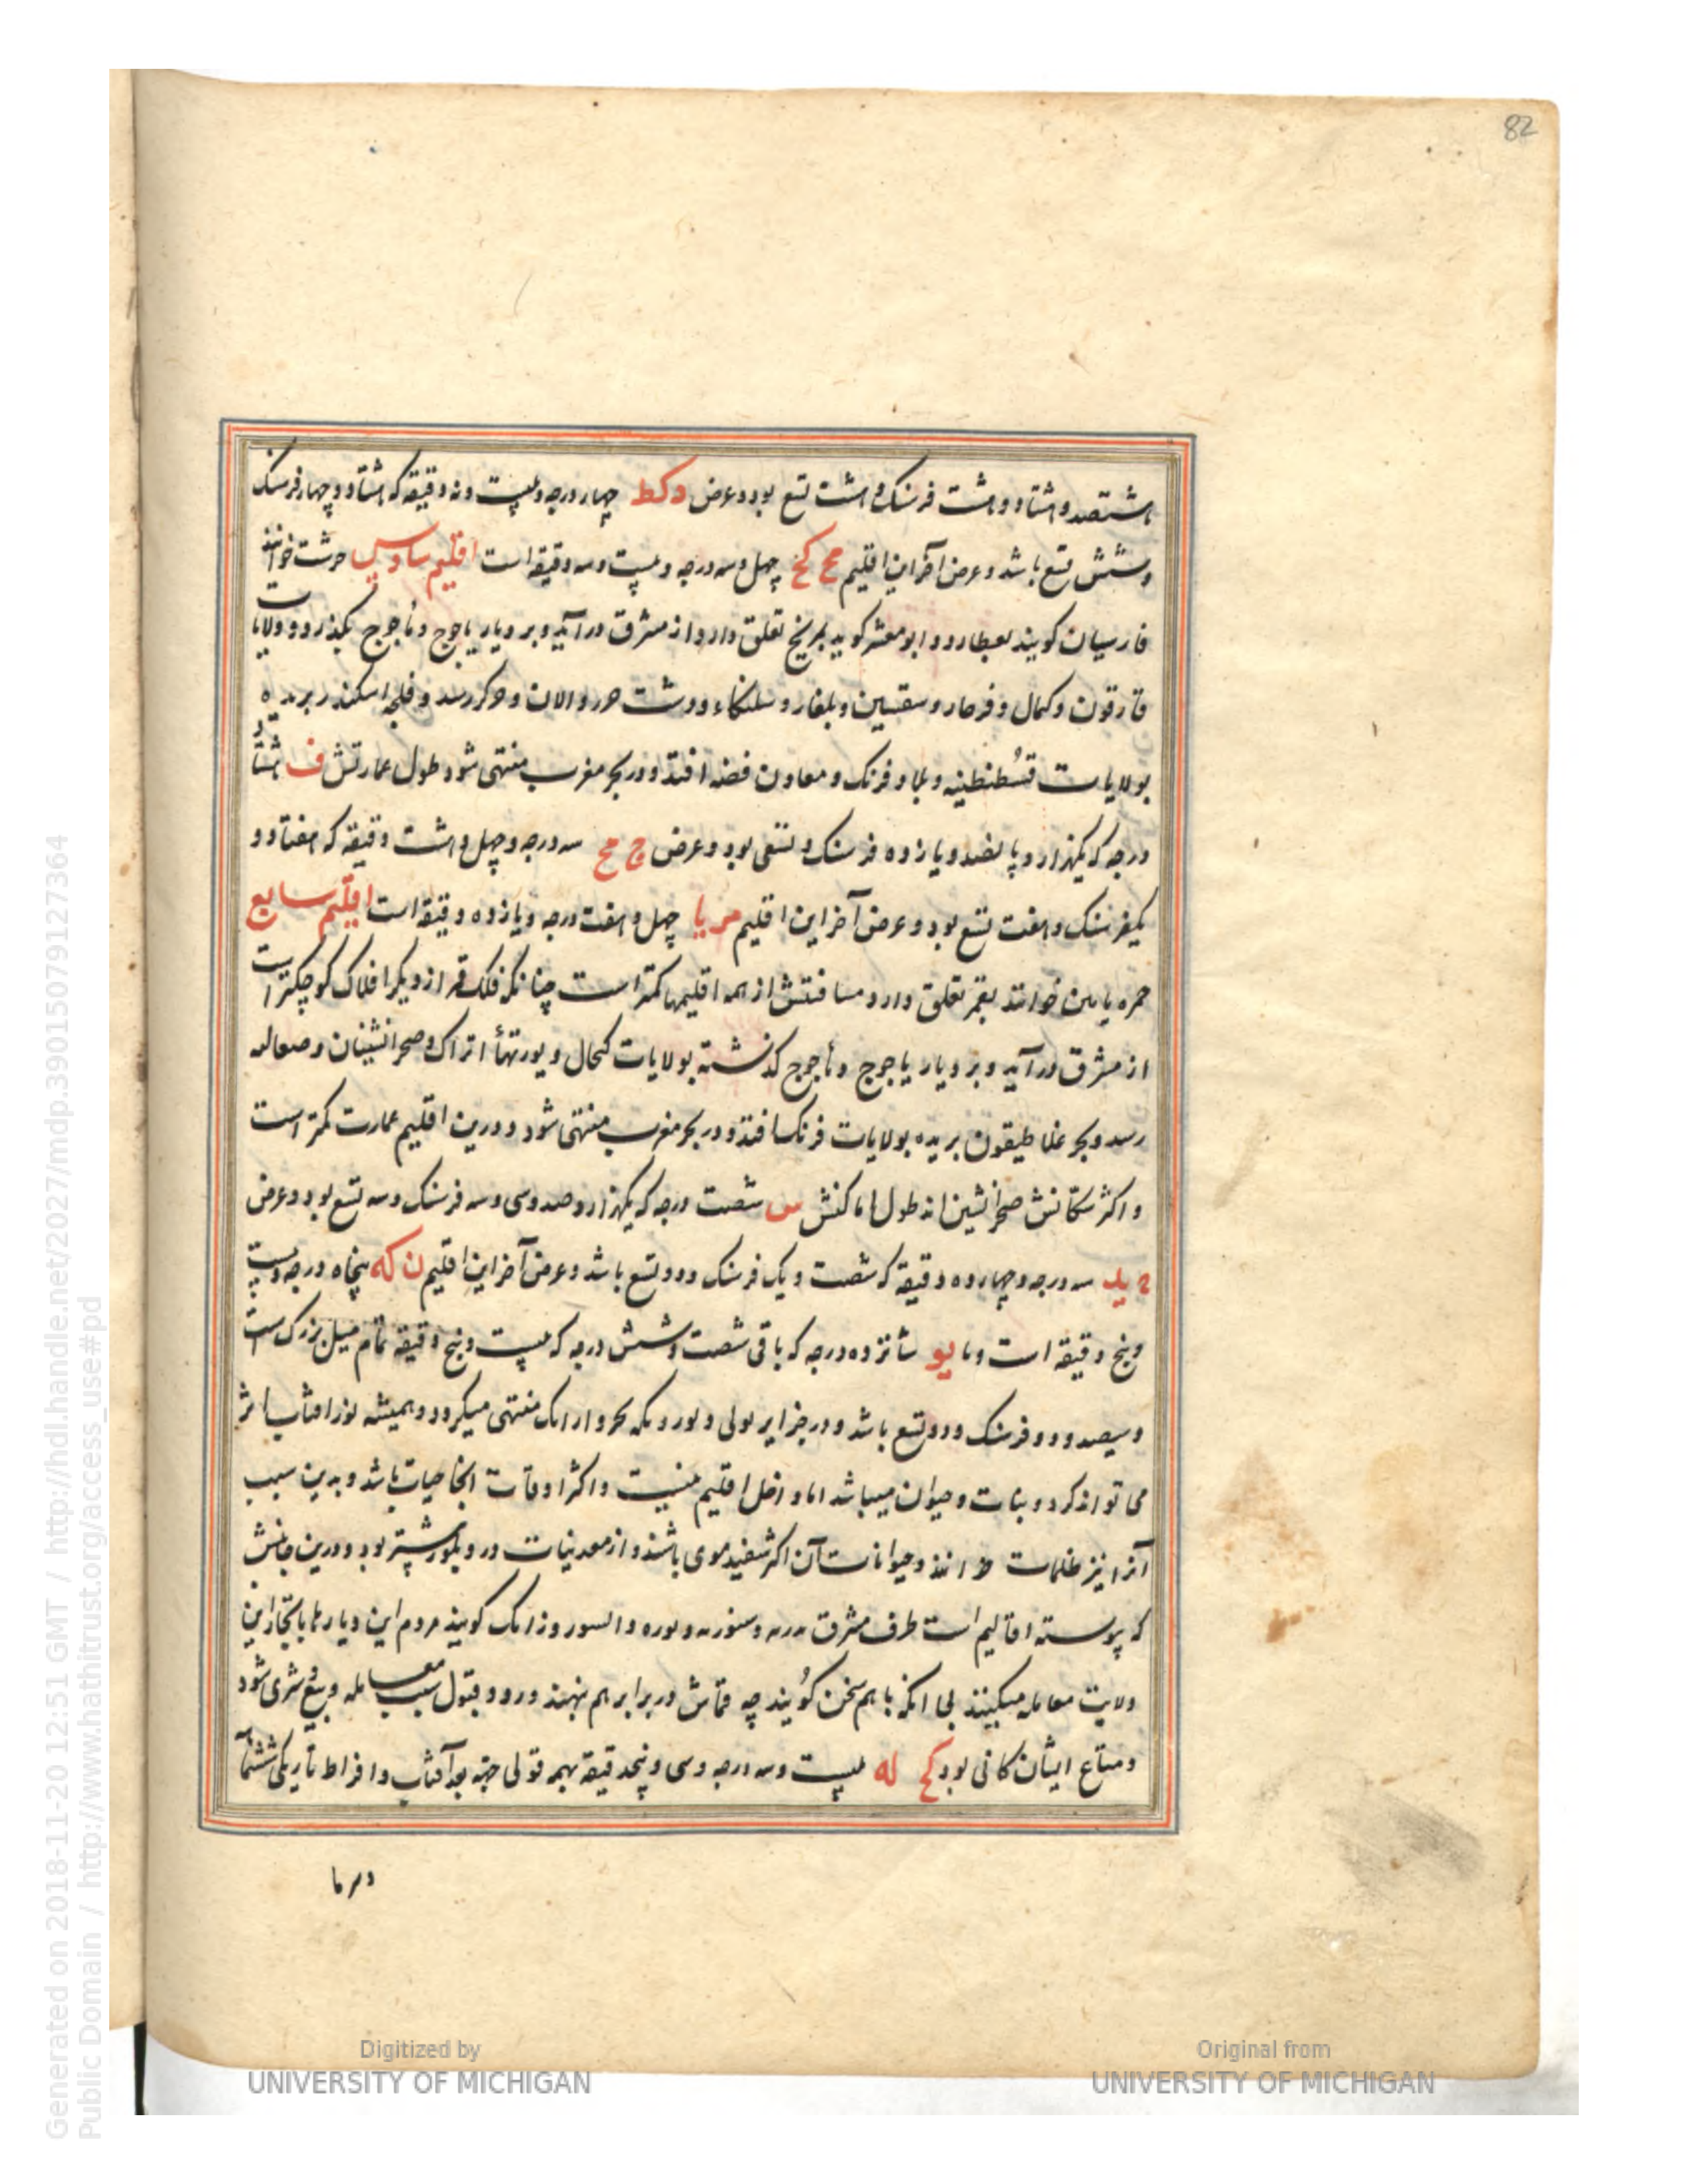 82
هشتصد و هشتاد و هشت فرسنک و هشت تسع بود و عرض د کط چهار درجه و بیست و نه دقیقه که هشتاد و چهار فرسنک
و شش تسع باشد و عرض آخر این اقلیم مح کح چهل و سه درجه و بیست و سه دقیقه است اقلیم سادس حرشت خوانند
فارسیان کویند بعطارد و ابو معشر کوید بمریخ تعلق دارد و از مشرق درآید و بر دیار یاجوج و ماجوج بگذرد و ولایات
قارقون و کمال و فرحار و سقسین و بلغار و سلنکاء و دشت و الان و رسد و خلیج اسکندر بریده
بولایات قسطنطینیه و بلاد فرنک و معادن فضه افتد و در بحر مغرب منتهی شود طول عمارتش ف هشتاد
درجه که یکهزار و پانصد و یازده فرسنک و تسعی بود و عرض ج مح سه درجه و چهل و هشت دقیقه که هفتاد و
یکفرسنک و هفت تسع بود و عرض آخر این اقلیم مر یا چهل و هفت درجه و یازده دقیقه است اقلیم سابع
خوانند بقمر تعلق دارد و مسافتش از همه اقلیمها کمتر است چنانکه فلک قمر از دیکر افلاک کوچکتر است
از مشرق درآید و بر دیار یاجوج و ماجوج کذشته بولایات کحال و یورتهأ اتراک و صحرانشینان و صقالبه
رسد و بحر غلاطیقون بریده بولایات فرنک افتد و در بحر مغرب منتهی شود و درین اقلیم عمارت کمتر است
و اکثر سکانش صحرانشین اند طول اماکنش س شصت درجه که یکهزار و صد و سی و سه فرسنک و سه تسع بود و عرض
ج ید سه درجه و چهارده دقیقه که شصت و یک فرسنک و دو تسع باشد و عرض آخر این اقلیم ن که پنجاه درجه و بیست
و پنج دقیقه است و ما یو شانزده درجه که باقی شصت و شش درجه که بیست و پنج دقیقه تمام میل بزرک است
و سیصد و دو فرسنک و دو تسع باشد و در جزایر منتهی میکردد و همیشه نور افتاب اثر
می تواند کرد و نبات و حیوان میباشد اما داخل اقلیم نیست و اکثر اوقات آنجا باشد و بدین سبب
آنرا نیز ظلمات خوانند و حیوانات آن اکثر سفید موی باشند و از معدنیات در و بلور بیشتر بود و درین
که پیوسته اقالیم است طرف مشرق کویند مردم این دیار با تجار این
ولایت معامله میکنند بی انکه با هم سخن کویند چه قماش در برابر هم نهند و رد و قبول سبب معامله و بیع و شری شود
و متاع ایشان کانی بود کح له بیست و سه درجه و سی و پنج دقیقه بهمه قولی جهة بعد آفتاب و افراط تاریکی
و سرما